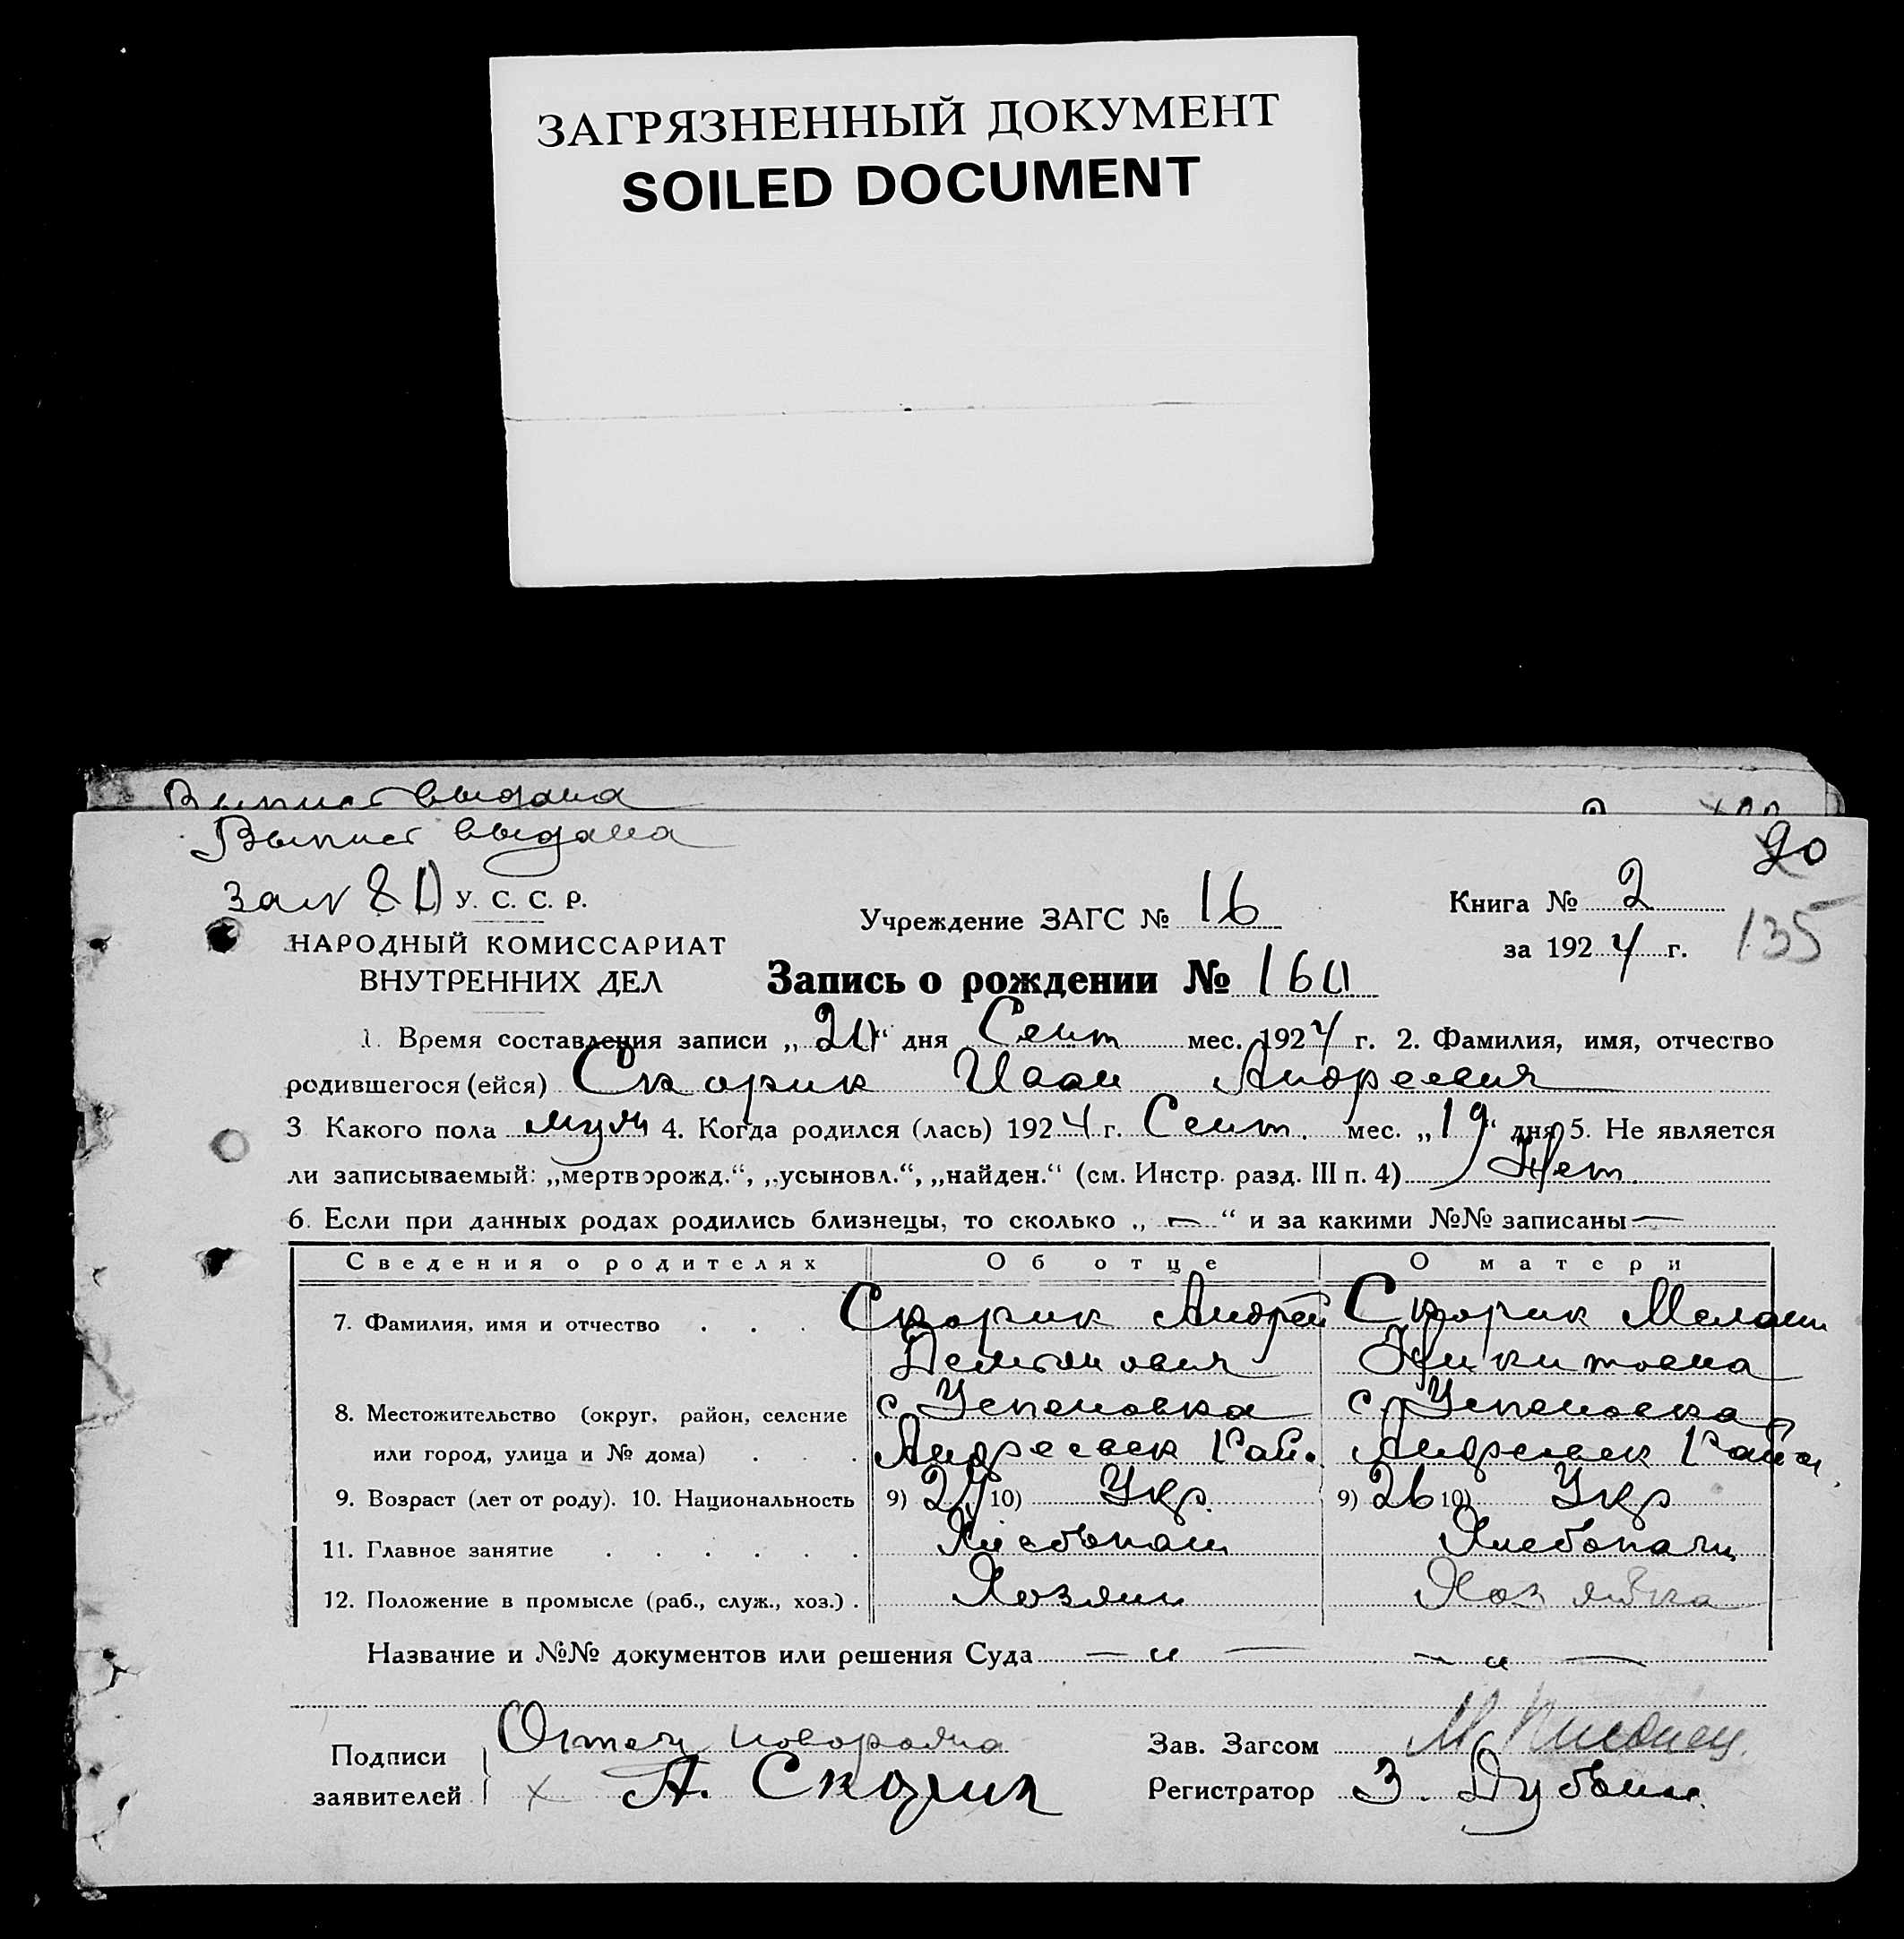 ЗАГРЯЗНЕННЫЙ ДОКУМЕНТ
SOILED DOCUMENT
выдана
Выпись выдана
20
У. С. С. Р.
Учреждение ЗАГС № 16
Книга № 2
135
НАРОДНЫЙ КОМИССАРИАТ
за 1924 г.
ВНУТРЕННИХ ДЕЛ
Запись о рождении № 160
1. Время составления записи „20“ дня Сент мес. 1924 г. 2. Фамилия, имя, отчество
родившегося (ейся) Скорик Иван Андреевич
3 Какого пола муж 4. Когда родился (лась) 1924 г. Сент. мес. „19“ дня 5. Не является
ли записываемый: „мертворожд.“, „усыновл.“, „найден.“ (см. Инстр. разд. III п. 4) Нет.
6. Если при данных родах родились близнецы, то сколько „ — “ и за какими №№ записаны —
Сведения о родителях Об отце О матери
7. Фамилия, имя и отчество . . . Скорик Андрей Скорик Мелани
Демьянович Никитовна
8. Местожительство (округ, район, селение с. Успеновка с. Успеновка
или город, улица и № дома) . . . Андреевск Рай. Андреевск Района
9. Возраст (лет от роду). 10. Национальность 9) 27 10) Укр. 9) 26 10) Укр
11. Главное занятие . . . . . . Хлебопаш Хлебопаш
12. Положение в промысле (раб., служ., хоз.) . Хозяин Хозяйка
Название и №№ документов или решения Суда — „ — — „ —
Отец новорожд
Подписи
заявителей
х А. Скорик
Зав. Загсом М.
Регистратор З.